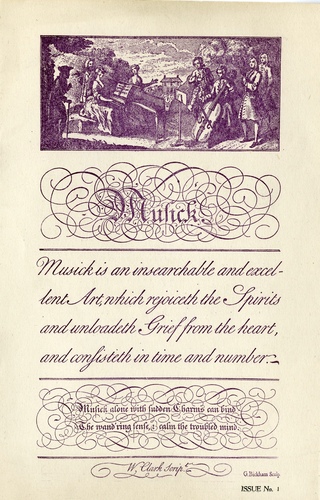 Musick.
Musick is an unsearchable and excel-
lent Art, which rejoiceth the Spirits
and unloadeth Grief from the heart,
and consisteth in time and number.
Musick alone with sudden Charms can bind
The wand'ring sense, & calm the troubled mind.
W. Clark Scrips.t
G. Bickham Sculp
ISSUE No. 1